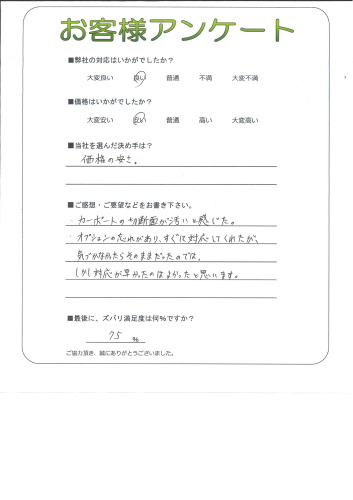 お客様アンケート
■弊社の対応はいかがでしたか？
大変良い 良い 普通 不満 大変不満
■価格はいかがでしたか？
大変安い 安い 普通 高い 大変高い
■当社を選んだ決め手は？
価格の安さ。
■ご感想・ご要望などをお書き下さい。
・カーポートの切断面が汚いと感じた。
・オプションの忘れがあり、すぐに対応してくれたが、
気づかなかったらそのままだったのでは。
しかし対応が早かったのはよかったと思います。
■最後に、ズバリ満足度は何％ですか？
75 ％
ご協力頂き、誠にありがとうございました。